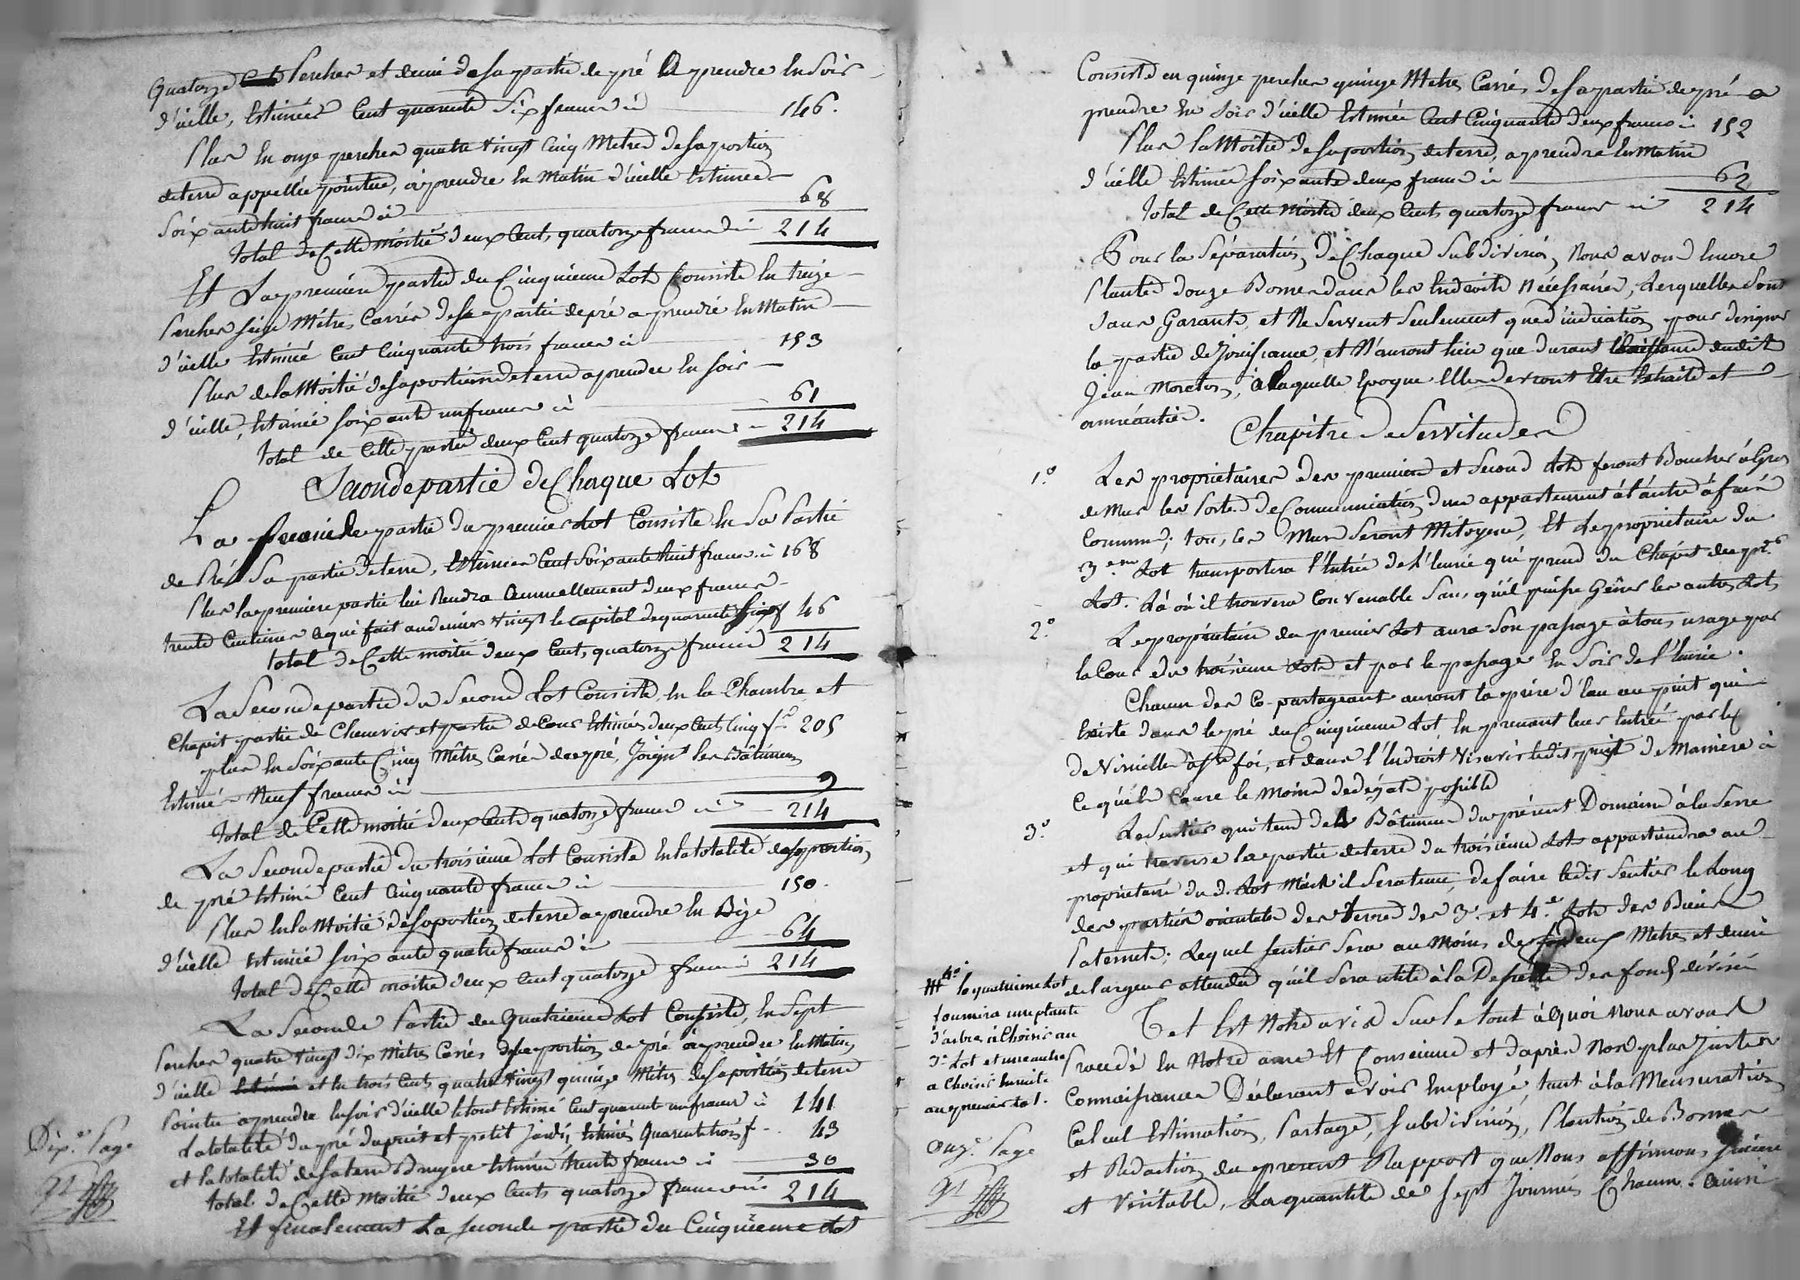 Quatorze perches et demie de sa partie de pré a prendre en soir
d'icelle, Estimées Cent quarante Six francs ci 146.
Plus En onze perches quatre vingt Cinq Metres de sa portion
de terre appellée pointue, à prendre En Matin d'icelle Estimée
Soixante huit francs ci 68
Total de Cette moitié deux Cents quatorze francs ci 214
Et La premiere partie du Cinquieme Lot Consiste En treize
Perches seize Mètres Carrés de sa partie de pré a prendre En Matin
d'icelle Estimée Cent Cinquante trois francs ci 153
Plus de la Moitié de sa portion de terre a prendre En soir
d'icelle, Estimée soixante un francs ci 61
Total de Cette partie deux Cent quatorze francs 214
Seconde partie de Chaque Lot
La partie du premier Lot Consiste En Sa Partie
de Pré Sa partie de terre, Estimées Cent Soixante huit francs ci 168
Plus la premiere partie lui Rendra Annuellement deux francs
trente Centimes Ce qui fait au denier vingt le capital de quarante six f 46
total de Cette moitié deux Cents quatorze francs 214
La Seconde partie du Second Lot Consiste En la Chambre et
Chapit partie de Chenevier et partie de Cour Estimés deux Cent Cinq f. 205
plus En soixante Cinq Mètres Carrés de pré, Joignt les Bâtiments
Estimé Neuf francs ci 9
Total de Cette moitié deux Cent quatorze francs ci 214
La Seconde partie du troisieme Lot Consiste En la totalité de sa portion
de pré Estimé Cent Cinquante francs ci 150.
Plus En la Moitié de sa portion de terre a prendre En Bize
d'icelle Estimée soixante quatre francs ci 64
Total de Cette moitié deux Cent quatorze francs 214
La Seconde Partie du Quatrieme Lot Consiste, En Sept
Perches quatre vingt dix Mètres Carrés de sa portion de pré à prendre En Matin
d'icelle et En trois Cents quatre vingt quinze Mètres de sa portion de terre
Pointue a prendre En soir d'icelle le tout Estimé Cent quarante un francs ci 141
La totalité du pré du puit et petit Jardin Estimés Quarante trois f. 43
et la totalité de sa terre Bruyere Estimée trente francs ci 30
Total de Cette Moitié deux Cents quatorze francs ci 214
Et finalement La seconde partie du Cinquieme Lot
Dix.e Page
Consiste en quinze perches quinze Metres Carrés de sa partie de pré a
prendre En soir d'icelle Estimée Cent Cinquante deux francs ci 152
Plus la Moitié de sa portion de terre, a prendre En Matin
d'icelle Estimée soixante deux francs ci 62
Total de Cette Moitié deux Cents quatorze francs ci 214
Pour la Séparation de Chaque Subdivision, Nous avons Encore
Planté douze Bornes dans les Endroits Nécessaires, Lesquelles Sont
Sans Garants, et Ne Servent Seulement que d'indication pour designer
la partie de Jouissance, et N'auront lieu que durant dudit
Jean Moreton, à Laquelle Epoque Elles devront Etre Extraites et
annéanties.
Chapitre de Servitudes
1.º Les propriétaires des premier et Second Lots feront Boucher à Gros
de Mur les Portes de Communication d'un appartement à l'autre à frais
Communs; tous les Murs Seront Mitoyens, Et Le propriétaire du
3.eme Lot transportera l'Entrée de l'Ecurie qui prend du Chapit du pr.er
Lot. Là où il trouvera Convenable Sans qu'il puisse Gêner les autres Lots
2.º Le propriétaire du premier Lot aura Son passage à tous usages par
la Cour du troisieme Lot et par le passage En Soir de l'Ecurie.
Chacun des Co-partageant auront la prise d'Eau au puit qui
Existe dans le pré du Cinquieme Lot, En prenant leur Entrée par le
, et dans l'Endroit Vis-avis ledit puit de Maniere à
Ce qu'Elle Cause le Moins de dégats possible
3.º Le Sentier qui tend de Bâtiment du présent Domaine à la Serre
et qui traverse la partie de terre du troisieme Lot appartiendra au
propriétaire du d. Lot Mais il Sera tenu, de faire ledit Sentier le Long
des parties orientales des terres des 3.e et 4.e Lots des Biens
Paternels; Lequel Sentier Sera au Moins de deux Metres et demi
de largeur attendu qu'il Sera utile à la Desserte des fonds divisés
4.º le quatrieme Lot
fournira une plante
d'arbre à Choisir au
3.e Lot et une autre
a Choisir Ensuite
au premier Lot.
Tel Est Notre avis Sur le tout à Quoi Nous avons
Procédé En Notre ame Et Conscience et d'après Nos plus Justes
Connaissances Déclarant avoir Employé, tant à la Mensuration
Calcul Estimation, Partage, Subdivision, Plantion de Bornes
et Rédaction du present Rapport que Nous affirmons Sincere
et Véritable, La quantité de Sept Journées Chacun. Ainsi
Onz.e Page